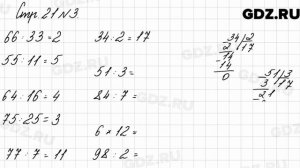 GDZ.RU
Стр. 21 N3
66 : 33 = 2
55 : 11 = 5
64 : 16 = 4
75 : 25 = 3
77 : 7 = 11
34 : 2 = 17
51 : 3 =
84 : 7 =
6 × 12 =
98 : 2 =
34 | 2
2 | 17
-14
14
0
51 | 3
3 | 17
21
GDZ.RU